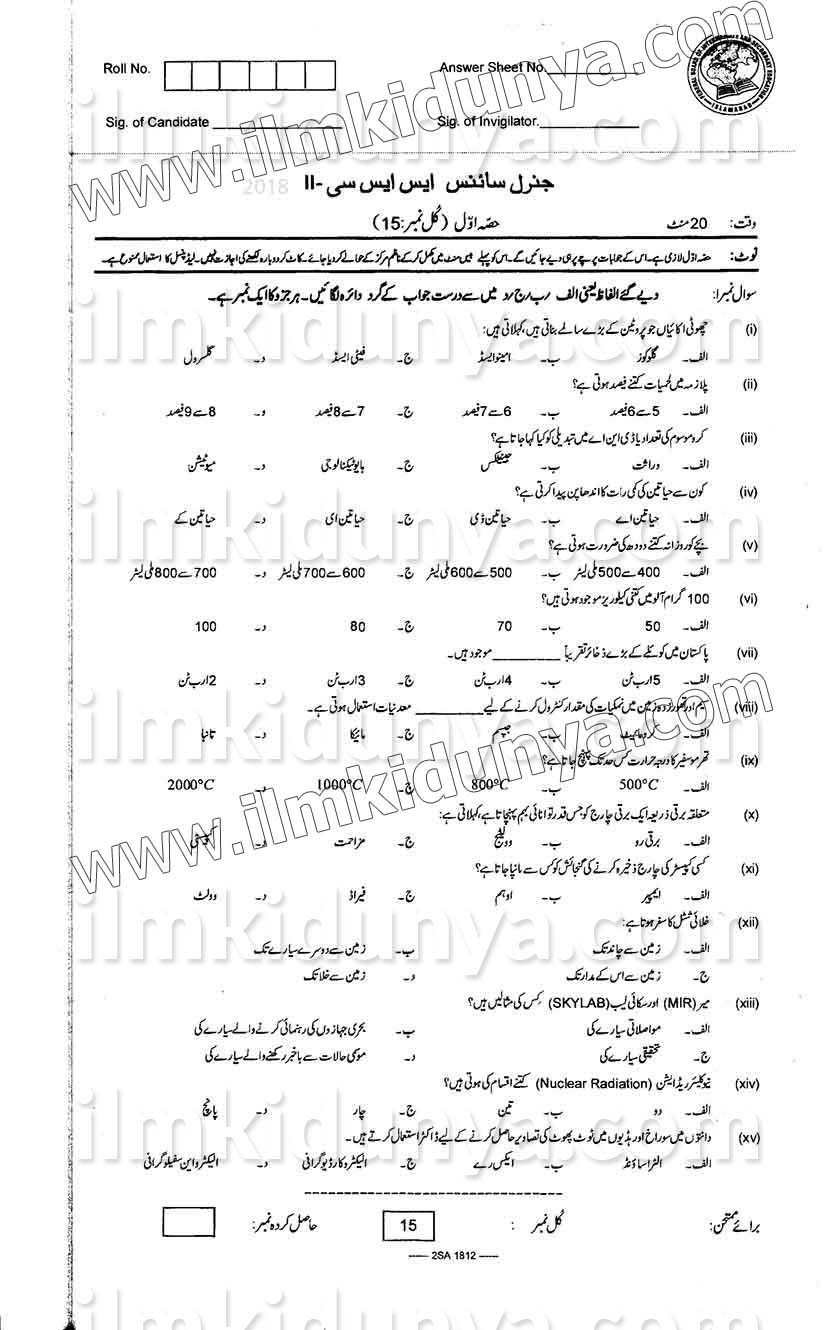 Roll No. Answer Sheet No.
FEDERAL BOARD OF INTERMEDIATE AND SECONDARY EDUCATION ISLAMABAD
Sig. of Candidate Sig. of Invigilator.
www.ilmkidunya.com
2018
جنرل سائنس ایس ایس سی -II
وقت: 20 منٹ حصہ اوّل (کُل نمبر: 15)
نوٹ: حصہ اوّل لازمی ہے۔ اس کے جوابات پرچے پر ہی دیے جائیں گے۔ اس کو پہلے بیس منٹ میں مکمل کر کے ناظم مرکز کے حوالے کر دیا جائے۔ کاٹ کر دوبارہ لکھنے کی اجازت نہیں۔ لیڈ پنسل کا استعمال ممنوع ہے۔
سوال نمبر ا: دیے گئے الفاظ یعنی الف / ب / ج / د میں سے درست جواب کے گرد دائرہ لگائیں۔ ہر جزو کا ایک نمبر ہے۔
(i) چھوٹی اکائیاں جو پروٹین کے بڑے سالمے بناتی ہیں، کہلاتی ہیں:
الف۔ گلوکوز ب۔ امینو ایسڈ ج۔ فیٹی ایسڈ د۔ گلسرول
(ii) پلازمہ میں لحمیات کتنے فیصد ہوتی ہے؟
الف۔ 5 سے 6 فیصد ب۔ 6 سے 7 فیصد ج۔ 7 سے 8 فیصد د۔ 8 سے 9 فیصد
(iii) کروموسوم کی تعداد یا ڈی این اے میں تبدیلی کو کیا کہا جاتا ہے؟
الف۔ وراثت ب۔ جینیٹکس ج۔ بائیوٹیکنالوجی د۔ میوٹیشن
(iv) کون سے حیاتین کی کمی رات کا اندھا پن پیدا کرتی ہے؟
الف۔ حیاتین اے ب۔ حیاتین ڈی ج۔ حیاتین ای د۔ حیاتین کے
(v) بچے کو روزانہ کتنے دودھ کی ضرورت ہوتی ہے؟
الف۔ 400 سے 500 ملی لیٹر ب۔ 500 سے 600 ملی لیٹر ج۔ 600 سے 700 ملی لیٹر د۔ 700 سے 800 ملی لیٹر
(vi) 100 گرام آلو میں کتنی کیلوریز موجود ہوتی ہیں؟
الف۔ 50 ب۔ 70 ج۔ 80 د۔ 100
(vii) پاکستان میں کوئلے کے بڑے ذخائر تقریباً موجود ہیں۔
الف۔ 5 ارب ٹن ب۔ 4 ارب ٹن ج۔ 3 ارب ٹن د۔ 2 ارب ٹن
(viii) سیم اور تھور زدہ زمین میں نمکیات کی مقدار کنٹرول کرنے کے لیے معدنیات استعمال ہوتی ہے۔
الف۔ کرومائیٹ ب۔ جپسم ج۔ مائیکا د۔ تانبا
(ix) تھرموسفیر کا درجہ حرارت کس حد تک پہنچ جاتا ہے؟
الف۔ 500°C ب۔ 800°C ج۔ 1000°C د۔ 2000°C
(x) متعلقہ برقی ذریعہ ایک برقی چارج کو جس قدر توانائی بہم پہنچاتا ہے، کہلاتی ہے:
الف۔ برقی رو ب۔ وولٹیج ج۔ مزاحمت د۔ کپیسٹی
(xi) کسی کپیسٹر کی چارج ذخیرہ کرنے کی گنجائش کو کس سے ماپا جاتا ہے؟
الف۔ ایمپیر ب۔ اوہم ج۔ فیراڈ د۔ وولٹ
(xii) خلائی شٹل کا سفر ہوتا ہے:
الف۔ زمین سے چاند تک ب۔ زمین سے دوسرے سیارے تک
ج۔ زمین سے اس کے مدار تک د۔ زمین سے خلا تک
(xiii) میر (MIR) اور سکائی لیب (SKYLAB) کس کی مثالیں ہیں؟
الف۔ مواصلاتی سیارے کی ب۔ بحری جہازوں کی رہنمائی کرنے والے سیارے کی
ج۔ تحقیقی سیارے کی د۔ موسمی حالات سے باخبر رکھنے والے سیارے کی
(xiv) نیوکلیئر ریڈایشن (Nuclear Radiation) کتنے اقسام کی ہوتی ہیں؟
الف۔ دو ب۔ تین ج۔ چار د۔ پانچ
(xv) دانتوں میں سوراخ اور ہڈیوں میں ٹوٹ پھوٹ کی تصاویر حاصل کرنے کے لیے ڈاکٹر استعمال کرتے ہیں۔
الف۔ الٹرا ساؤنڈ ب۔ ایکس رے ج۔ الیکٹرو کارڈیوگرافی د۔ الیکٹرو این سفیلوگرافی
برائے ممتحن: کُل نمبر: 15 حاصل کردہ نمبر:
2SA 1812